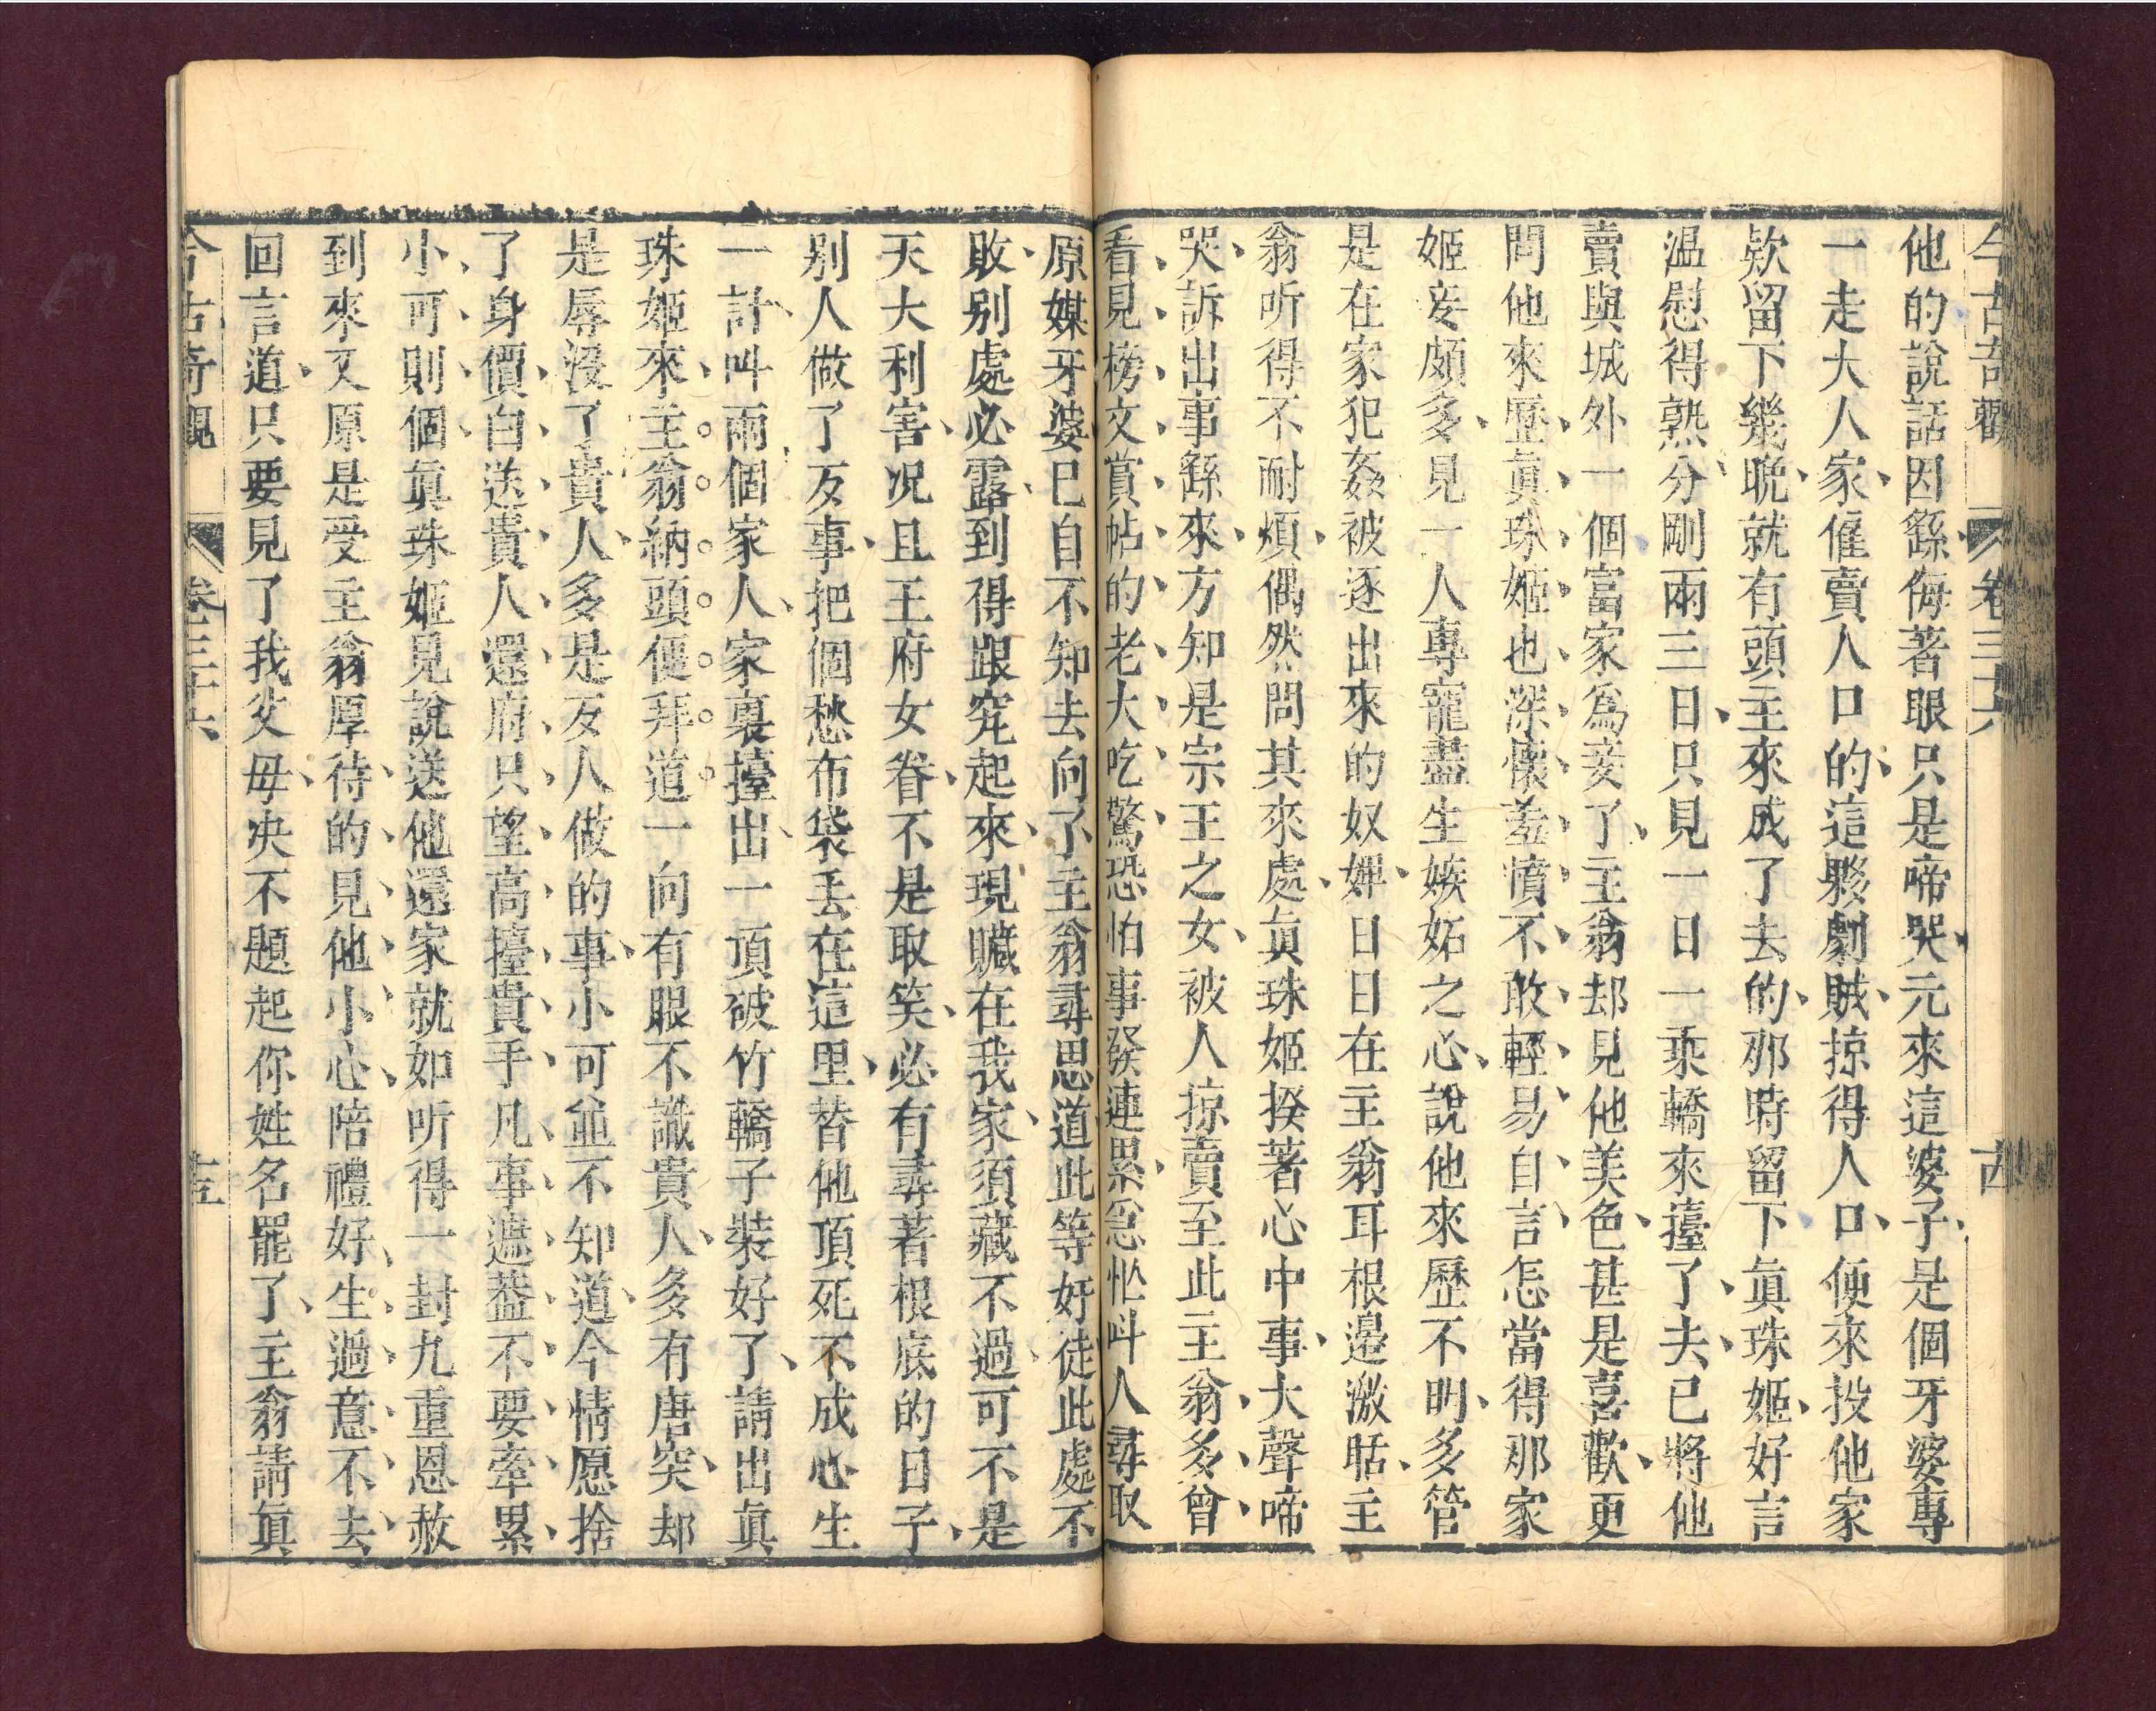 今古奇觀 卷三十六 十四
他的說話因繇侮著眼只是啼哭元來這婆子是個牙婆專
一走大人家僱賣人口的這夥劇賊掠得人口便來投他家
欵留下幾晩就有頭主來成了去的那時留下眞珠姬好言
温慰得熟分剛兩三日只見一日一乘轎來擡了去已將他
賣與城外一個富家爲妾了主翁却見他美色甚是喜歡更
問他來歷眞珠姬也深懷羞憤不敢輕易自言怎當得那家
姬妾頗多見一人專寵盡生嫉妬之心說他來歷不明多管
是在家犯姦被逐出來的奴婢日日在主翁耳根邊激聒主
翁听得不耐煩偶然問其來處眞珠姬揆著心中事大聲啼
哭訴出事繇來方知是宗王之女被人掠賣至此主翁多曾
看見榜文賞帖的老大吃驚恐怕事發連累急忙叫人尋取
原媒牙婆已自不知去向了主翁尋思道此等奸徒此處不
敗别處必露到得跟究起來現贓在我家須藏不過可不是
天大利害况且王府女眷不是取笑必有尋著根底的日子
别人做了反事把個愁布袋丢在這里替他頂死不成心生
一計叫兩個家人家裏擡出一頂破竹轎子裝好了請出眞
珠姬來主翁納頭便拜道一向有眼不識貴人多有唐突却
是辱没了貴人多是反人做的事小可並不知道今情愿捨
了身價白送貴人還府只望高擡貴手凡事遮葢不要牽累
小可則個眞珠姬見說送他還家就如听得一封九重恩赦
到來又原是受主翁厚待的見他小心陪禮好生過意不去
回言道只要見了我父母决不題起你姓名罷了主翁請眞
今古奇觀 卷三十六 十五